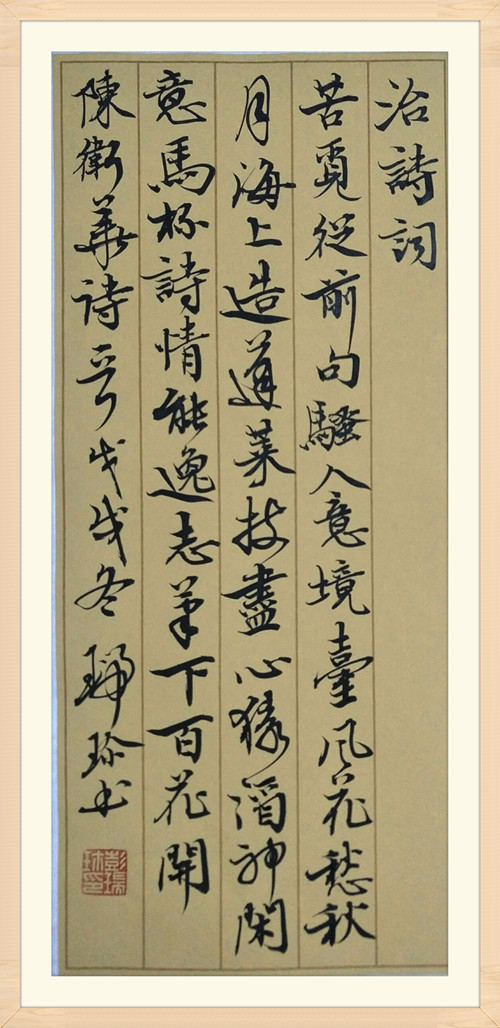 治詩詞
苦覓從前句騷人意境臺風花愁秋
月海上造蓬萊技盡心猿滔神閑
意馬杯詩情能逸志筆下百花開
陳衛華詩一首戊戌冬 瑞珍书
彭瑞珎印